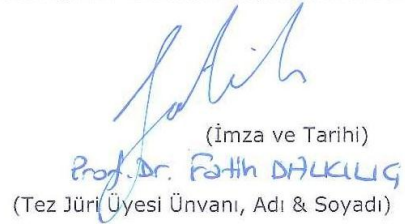 Fatih
(İmza ve Tarihi)
Prof. Dr. Fatih DALKILIÇ
(Tez Jüri Üyesi Ünvanı, Adı & Soyadı)